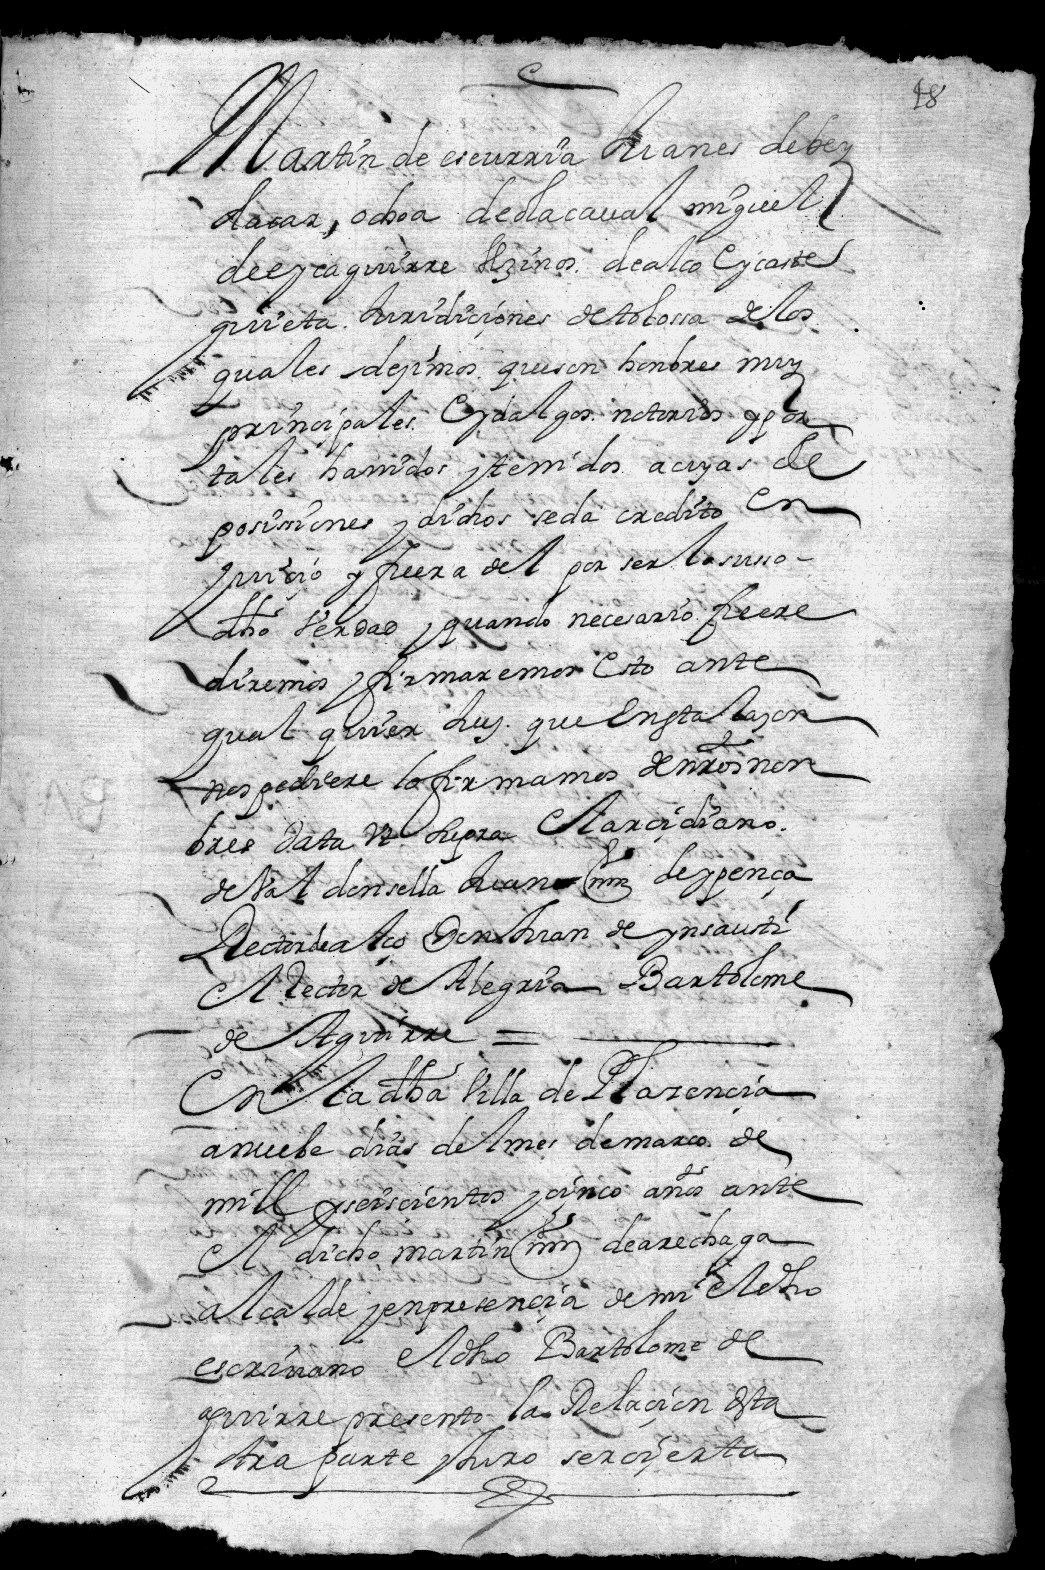 18
Martin de escurria Juanes de bey
dacar, ochoa de olacaual miguel
de eycaguirre Vezinos. de alço Eycaste
guieta. Juridiciones de tolossa de los
quales dezimos. que son honbres muy
principales. Eydalgos. notorios y por
tales hauidos y tenidos. a cuyas de
posiciones y dichos se da credito En
Juicio y fuera del por ser lo suso-
dho Verdad y quando necesario. fuere
diremos y firmaremos Esto ante
qual quier Juez. que En esta razon
nos pediere lo firmamos de nros non
bres data Vt. supra El arcidiano.
de Val donsella Juan de ypença
Rector de alço Don Juan de ynsausti
El Rector de Alegria Bartolome
de Aguirre =
En la dha Villa de Plazencia
a nuebe dias del mes de março. de
mill y seiscientos y cinco años ante
El dicho martin de arechaga
alcalde y en presencia de mi El dho
escriuano El dho Bartolome de
aguirre presento la Relacion desta
otra parte y Juro ser cierta